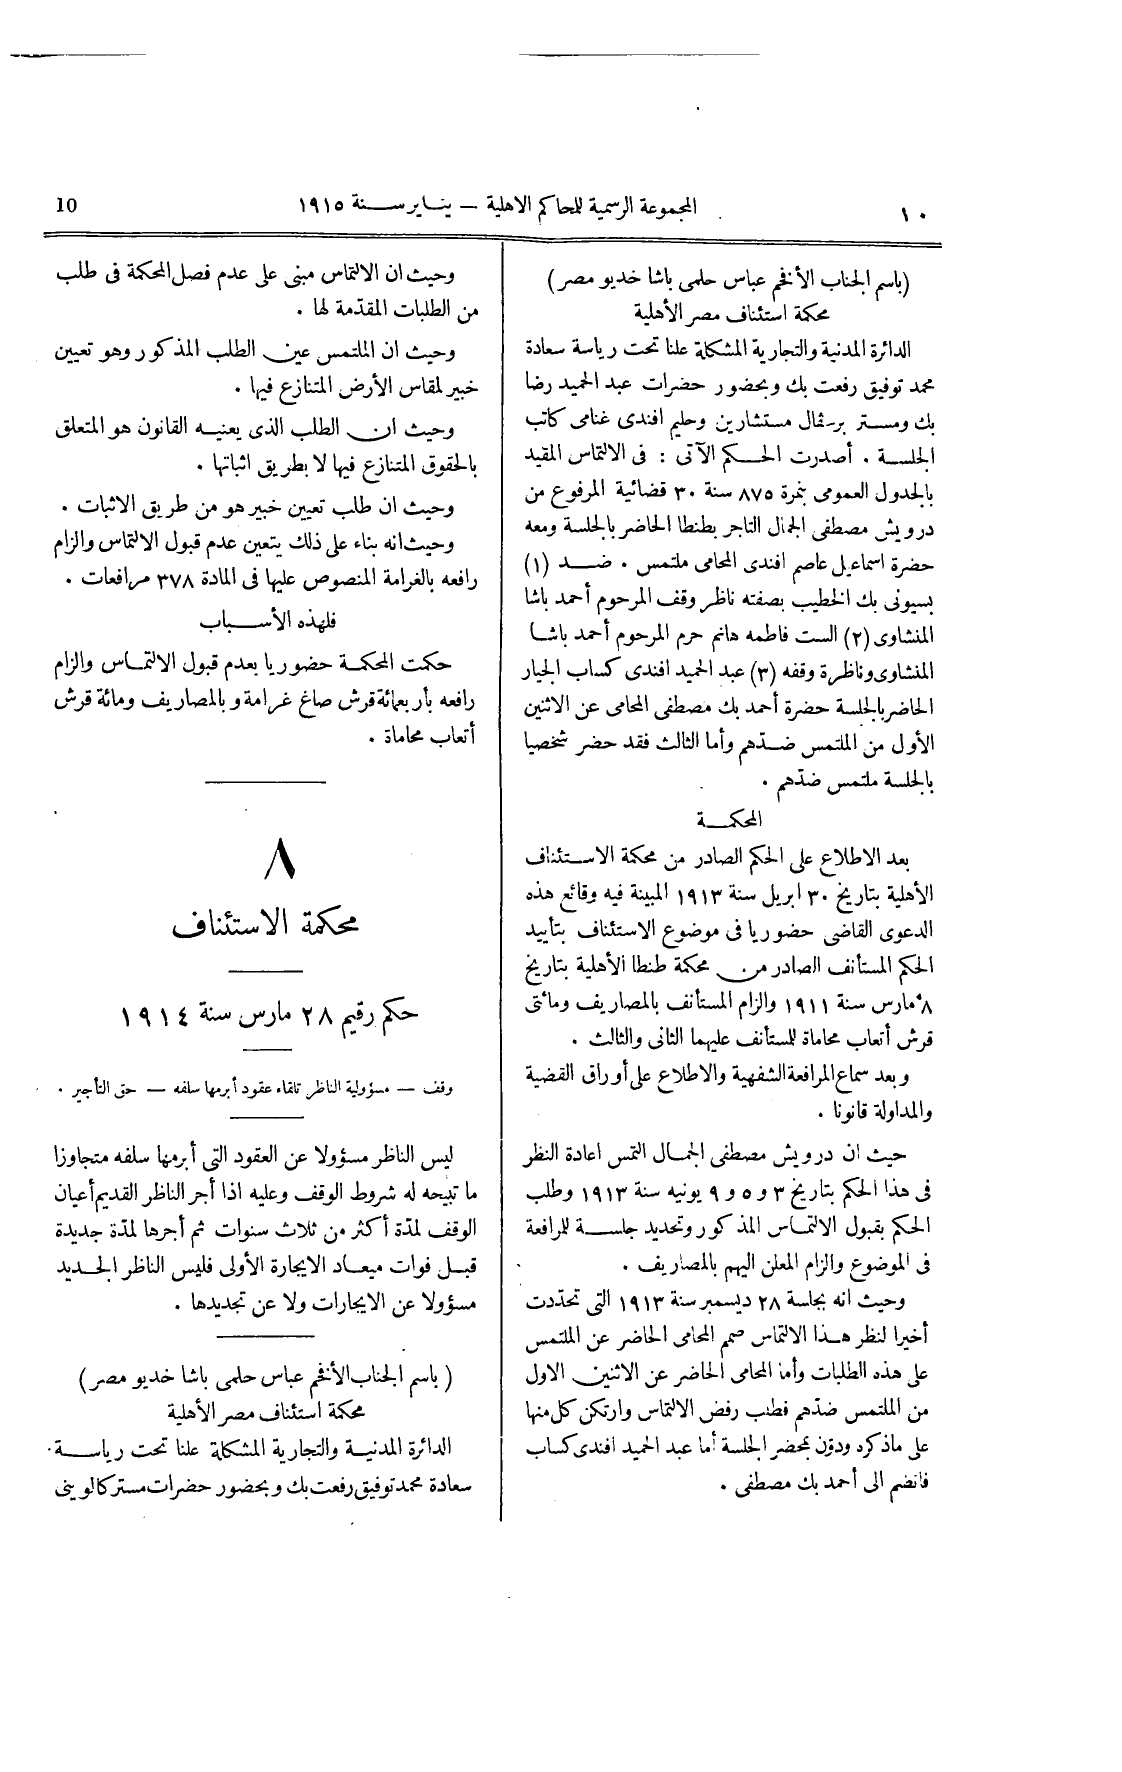 ١٠
المجموعة الرسمية للمحاكم الاهلية — يناير سنة ١٩١٥
10
(باسم الجناب الأفخم عباس حلمى باشا خديو مصر)
محكمة استئناف مصر الأهلية
الدائرة المدنية والتجارية المشكلة علنا تحت رياسة سعادة
محمد توفيق رفعت بك وبحضور حضرات عبد الحميد رضا
بك ومستر برسڤال مستشارين وحليم افندى غنامى كاتب
الجلسة . أصدرت الحكم الآتى : فى الالتماس المقيد
بالجدول العمومى بنمرة ٨٧٥ سنة ٣٠ قضائية المرفوع من
درويش مصطفى الجمال التاجر بطنطا الحاضر بالجلسة ومعه
حضرة اسماعيل عاصم افندى المحامى ملتمس . ضد (١)
بسيونى بك الخطيب بصفته ناظر وقف المرحوم أحمد باشا
المنشاوى (٢) الست فاطمه هانم حرم المرحوم أحمد باشا
المنشاوى وناظرة وقفه (٣) عبد الحميد افندى كساب الجيار
الحاضر بالجلسة حضرة أحمد بك مصطفى المحامى عن الاثنين
الأول من الملتمس ضدّهم وأما الثالث فقد حضر شخصيا
بالجلسة ملتمس ضدّهم .
المحكمة
بعد الاطلاع على الحكم الصادر من محكمة الاستئناف
الأهلية بتاريخ ٣٠ ابريل سنة ١٩١٣ المبينة فيه وقائع هذه
الدعوى القاضى حضوريا فى موضوع الاستئناف بتأييد
الحكم المستأنف الصادر من محكمة طنطا الأهلية بتاريخ
٨ مارس سنة ١٩١١ والزام المستأنف بالمصاريف ومائتى
قرش أتعاب محاماة للمستأنف عليهما الثانى والثالث .
وبعد سماع المرافعة الشفهية والاطلاع على أوراق القضية
والمداولة قانونا .
حيث ان درويش مصطفى الجمال التمس اعادة النظر
فى هذا الحكم بتاريخ ٣ و ٥ و ٩ يونيه سنة ١٩١٣ وطلب
الحكم بقبول الالتماس المذكور وتحديد جلسة للمرافعة
فى الموضوع والزام المعلن اليهم بالمصاريف .
وحيث انه بجلسة ٢٨ ديسمبر سنة ١٩١٣ التى تحدّدت
أخيرا لنظر هذا الالتماس صمم المحامى الحاضر عن الملتمس
على هذه الطلبات وأما المحامى الحاضر عن الاثنين الاول
من الملتمس ضدّهم فطلب رفض الالتماس وارتكن كل منها
على ماذكره ودوّن بمحضر الجلسة أما عبد الحميد افندى كساب
فانضم الى أحمد بك مصطفى .
وحيث ان الالتماس مبنى على عدم فصل المحكمة فى طلب
من الطلبات المقدّمة لها .
وحيث ان الملتمس عين الطلب المذكور وهو تعيين
خبير لمقاس الأرض المتنازع فيها .
وحيث ان الطلب الذى يعنيه القانون هو المتعلق
بالحقوق المتنازع فيها لا بطريق اثباتها .
وحيث ان طلب تعيين خبير هو من طريق الاثبات .
وحيث انه بناء على ذلك يتعين عدم قبول الالتماس والزام
رافعه بالغرامة المنصوص عليها فى المادة ٣٧٨ مرافعات .
فلهذه الأسباب
حكمت المحكمة حضوريا بعدم قبول الالتماس والزام
رافعه بأربعمائة قرش صاغ غرامة وبالمصاريف ومائة قرش
أتعاب محاماة .
٨
محكمة الاستئناف
حكم رقيم ٢٨ مارس سنة ١٩١٤
وقف — مسؤولية الناظر تلقاء عقود أبرمها سلفه — حق التأجير .
ليس الناظر مسؤولا عن العقود التى أبرمها سلفه متجاوزا
ما تبيحه له شروط الوقف وعليه اذا أجر الناظر القديم أعيان
الوقف لمدّة أكثر من ثلاث سنوات ثم أجرها لمدّة جديدة
قبل فوات ميعاد الايجارة الأولى فليس الناظر الجديد
مسؤولا عن الايجارات ولا عن تجديدها .
(باسم الجناب الأفخم عباس حلمى باشا خديو مصر)
محكمة استئناف مصر الأهلية
الدائرة المدنية والتجارية المشكلة علنا تحت رياسة
سعادة محمد توفيق رفعت بك وبحضور حضرات مستر كالوينى